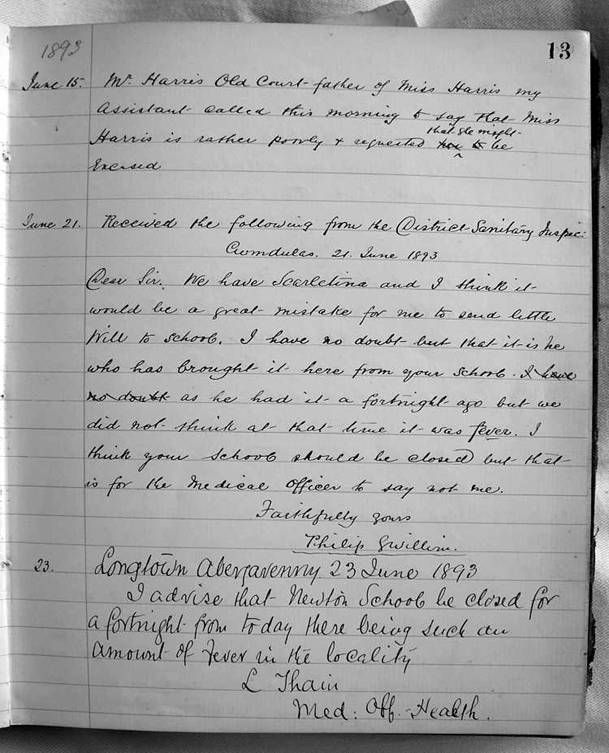 1893
13
June 15. Mr. Harris Old Court father of Miss Harris my
Assistant called this morning to say that Miss
that she might
Harris is rather poorly & requested her to be
Excused
June 21. Received the following from the District Sanitary Inspec:
Cwmdulas. 21 June 1893
Dear Sir. We have Scarletina and I think it
would be a great mistake for me to send little
Will to school. I have no doubt but that it is he
who has brought it here from your School. I have
no doubt as he had it a fortnight ago but we
did not think at that time it was fever. I
think your School should be closed but that
is for the Medical Officer to say not me.
Faithfully yours
Philip Gwillim.
23. Longtown Abergavenny 23 June 1893
I advise that Newton School be closed for
a fortnight from today there being such an
amount of Fever in the locality
L Thain
Med: Off. Health.